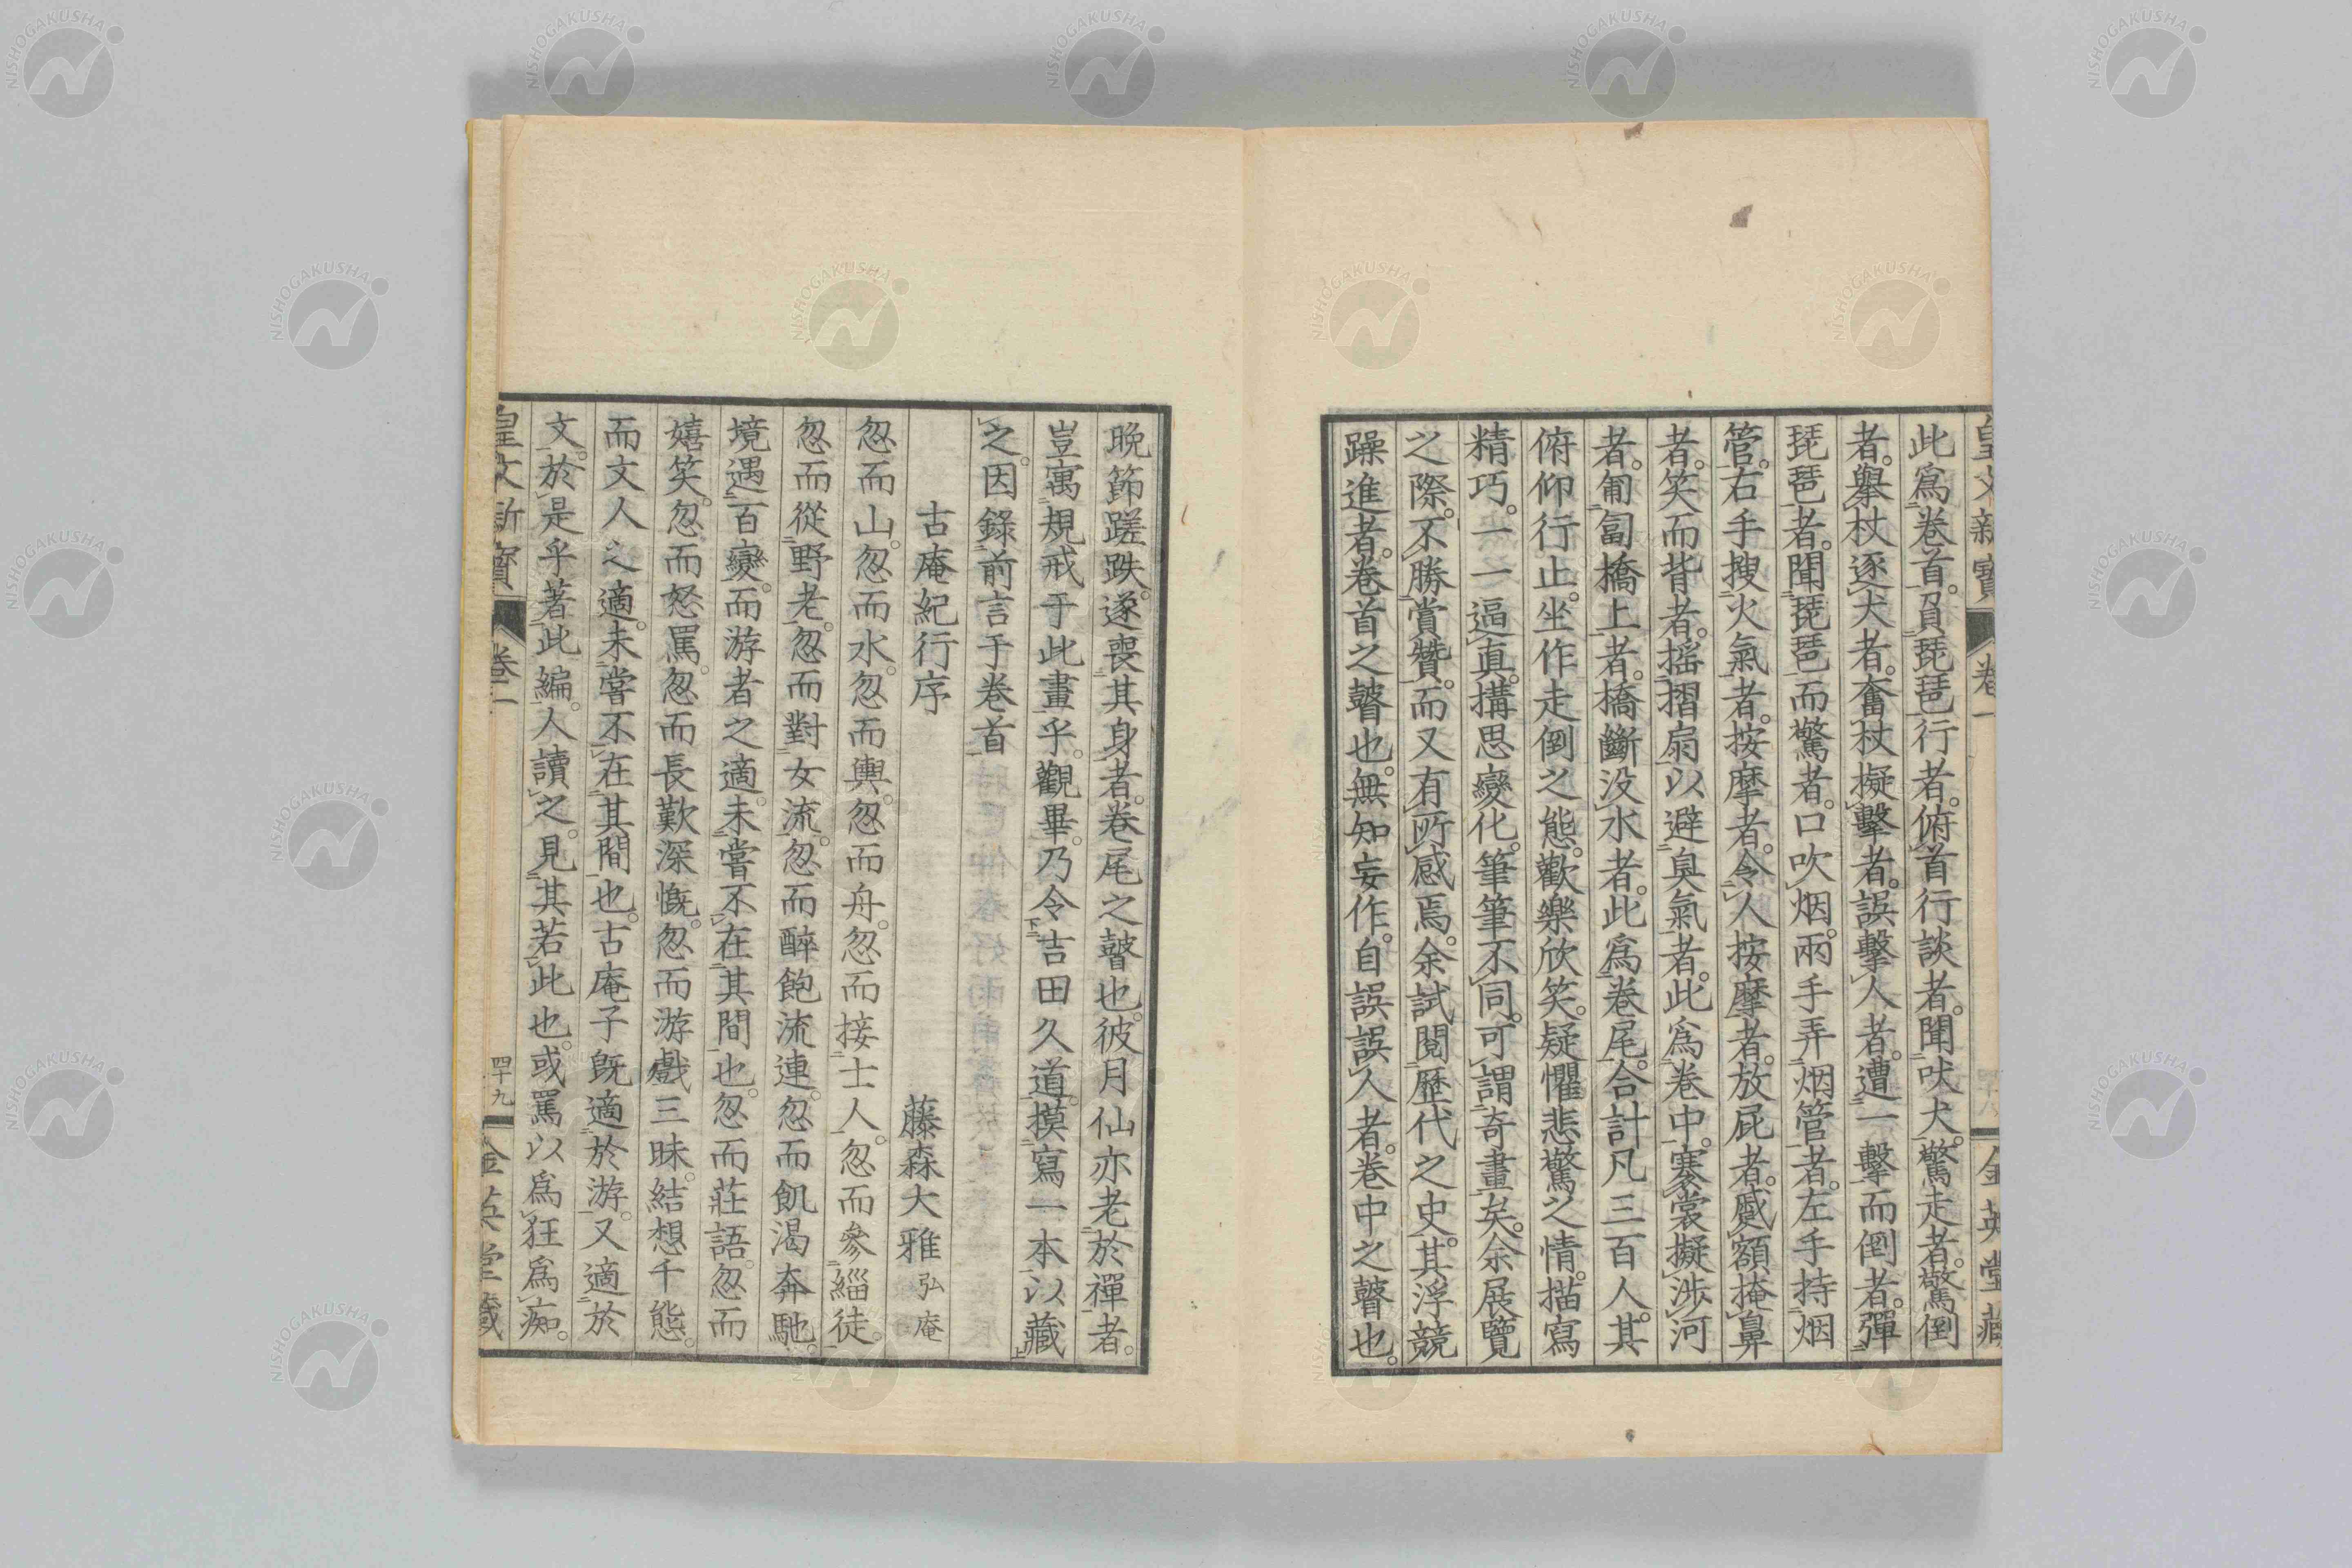 皇文新寶 卷一 四十八 金英堂藏
此爲卷首。負琵琶行者。俯首行談者。聞吠犬。驚走者。驚倒
者。擧杖逐犬者。奮杖擬擊者。誤擊人者。遭一擊而倒者。彈
琵琶者。聞琵琶而驚者。口吹烟。兩手弄烟管者。左手持烟
管。右手搜火氣者。按摩者。令人按摩者。放屁者。蹙額掩鼻
者。笑而背者。搖摺扇以避臭氣者。此爲卷中。褰裳擬涉河
者。匍匐橋上者。橋斷没水者。此爲卷尾。合計凡三百人。其
俯仰行止。坐作走倒之態。歡樂欣笑。疑懼悲驚之情。描寫
精巧。一一逼眞。搆思變化。筆筆不同。可謂奇畫矣。余展覽
之際。不勝賞贊。而又有所感焉。余試閱歷代之史。其浮競
躁進者。卷首之瞽也。無知妄作。自誤誤人者。卷中之瞽也。
晩節蹉跌。遂喪其身者。卷尾之瞽也。彼月仙亦老於禪者。
豈寓規戒于此畫乎。觀畢。乃令吉田久道。摸寫一本以藏
之。因錄前言于卷首
古庵紀行序
藤森大雅 弘庵
忽而山。忽而水。忽而輿。忽而舟。忽而接士人。忽而參緇徒。
忽而從野老。忽而對女流。忽而醉飽流連。忽而飢渴奔馳。
境遇百變。而游者之適。未嘗不在其間也。忽而莊語。忽而
嬉笑。忽而怒罵。忽而長歎深慨。忽而游戲三昧。結想千態。
而文人之適。未嘗不在其間也。古庵子既適於游。又適於
文。於是乎著此編。人讀之。見其若此也。或罵以爲狂爲痴。
皇文新寶 卷一 四十九 金英堂藏
NISHOGAKUSHA